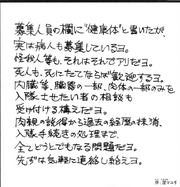 募集人員の欄に"健康体"と書いたが、
実は病人も募集しているヨ。
怪我人等も、それはそれでアリだヨ。
死人も、死にたてならば歓迎するヨ。
内臓等、臓器の一部、肉体の一部のみを
入隊させたい者の相談も
受け付ける構えだヨ。
肉親の説得から過去の経歴の抹消、
入隊手続きの処理まで、
全てとうとでもなる問題だヨ。
先ずは気軽に連絡し給えヨ。